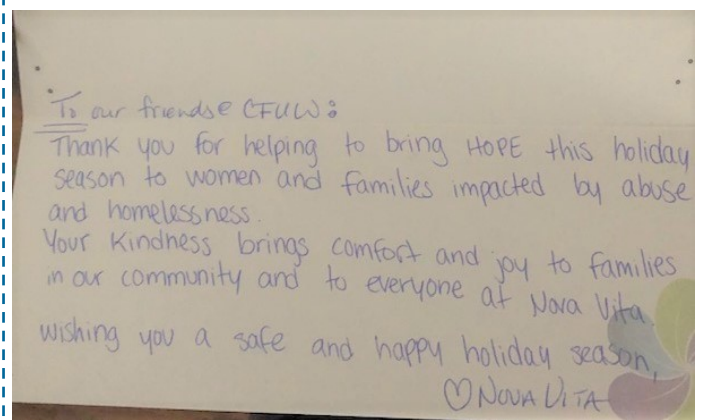 To our friends @ CFUW:
Thank you for helping to bring HOPE this holiday
season to women and families impacted by abuse
and homelessness.
Your kindness brings comfort and joy to families
in our community and to everyone at Nova Vita.
Wishing you a safe and happy holiday season,
♡ NOVA VITA